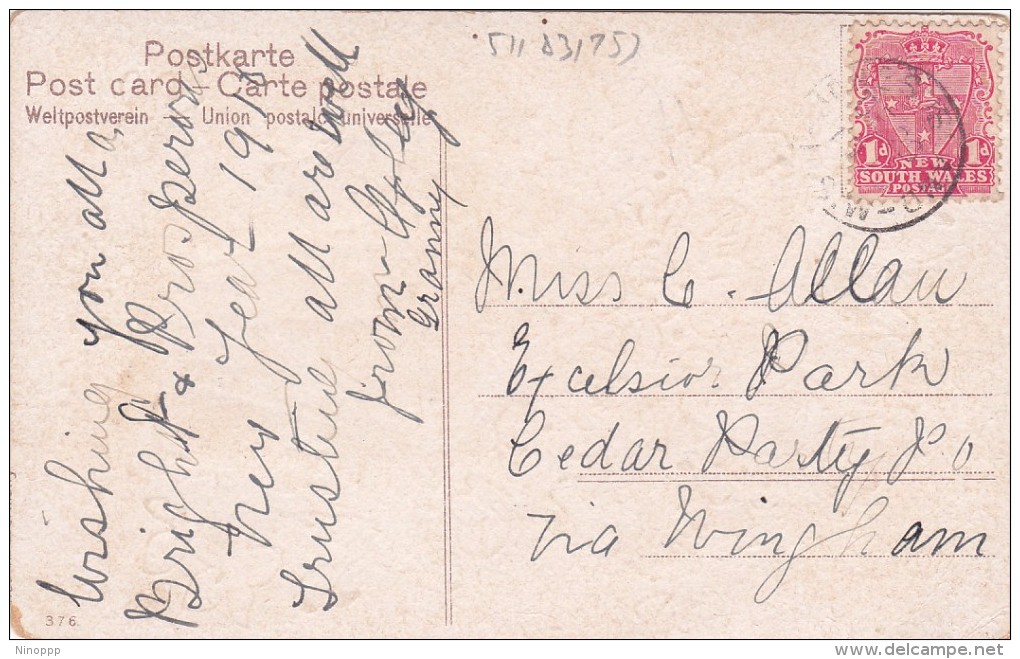 Postkarte
Post card - Carte postale
Weltpostverein - Union postale universelle
511 831753
1d NEW 1d
SOUTH WALES
POSTAGE
Wishing you all a
Bright & Prosperous
New Year 1910
Trusting all are well
from
Granny
Miss C. Allan
Excelsior Park
Cedar Party P.O
Via Wingham
376.
Ninoppp
delcampe.net